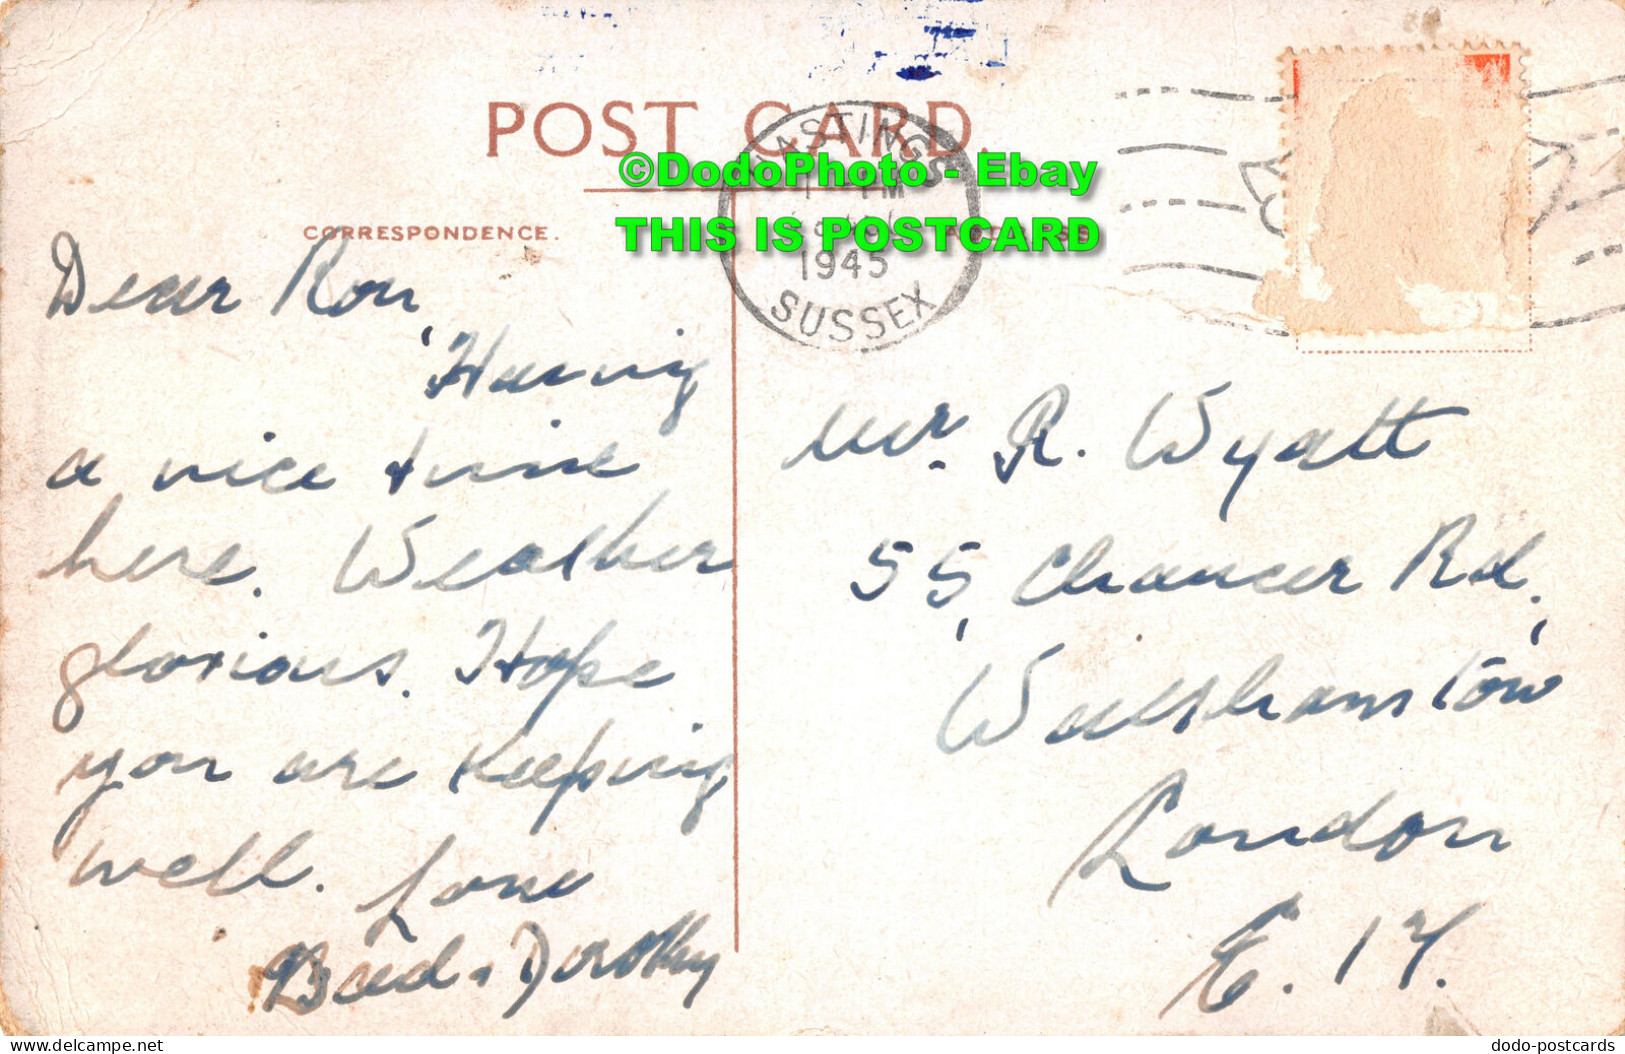 POST CARD.
HASTINGS
PM
1945
SUSSEX
©DodoPhoto - Ebay
THIS IS POSTCARD
CORRESPONDENCE.
Dear Ron
Having
a nice time
here. Weather
glorious. Hope
you are keeping
well. Love
& Dorothy
Mr. R. Wyatt
55, Chaucer Rd.
Walthamstow
London
E. 17.
dodo-postcards
www.delcampe.net